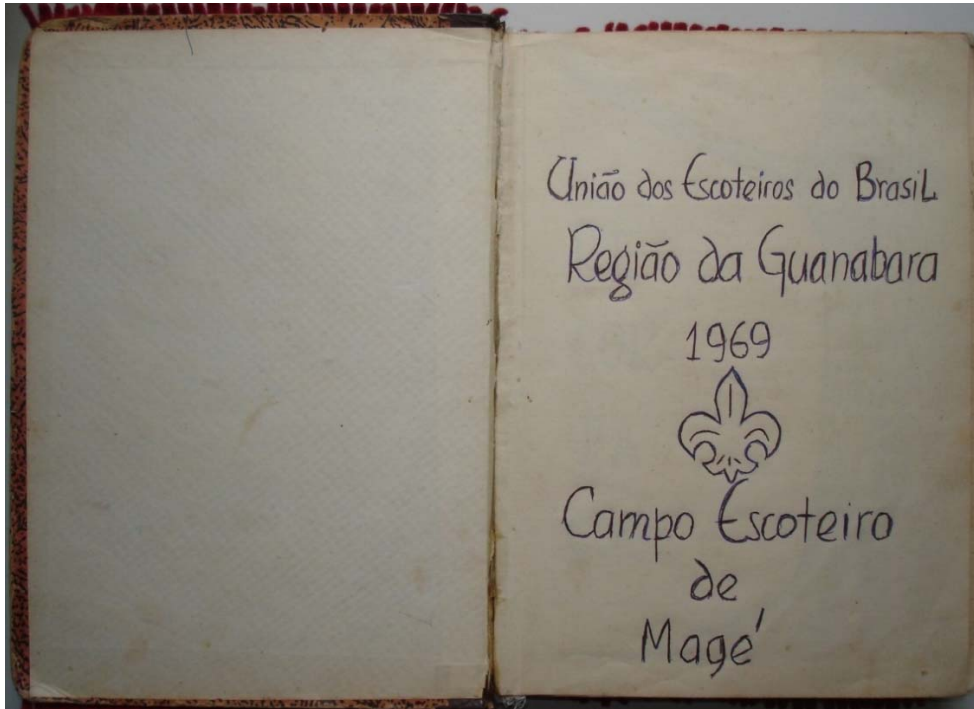 União dos Escoteiros do Brasil
Região da Guanabara
1969
Campo Escoteiro
de
Magé